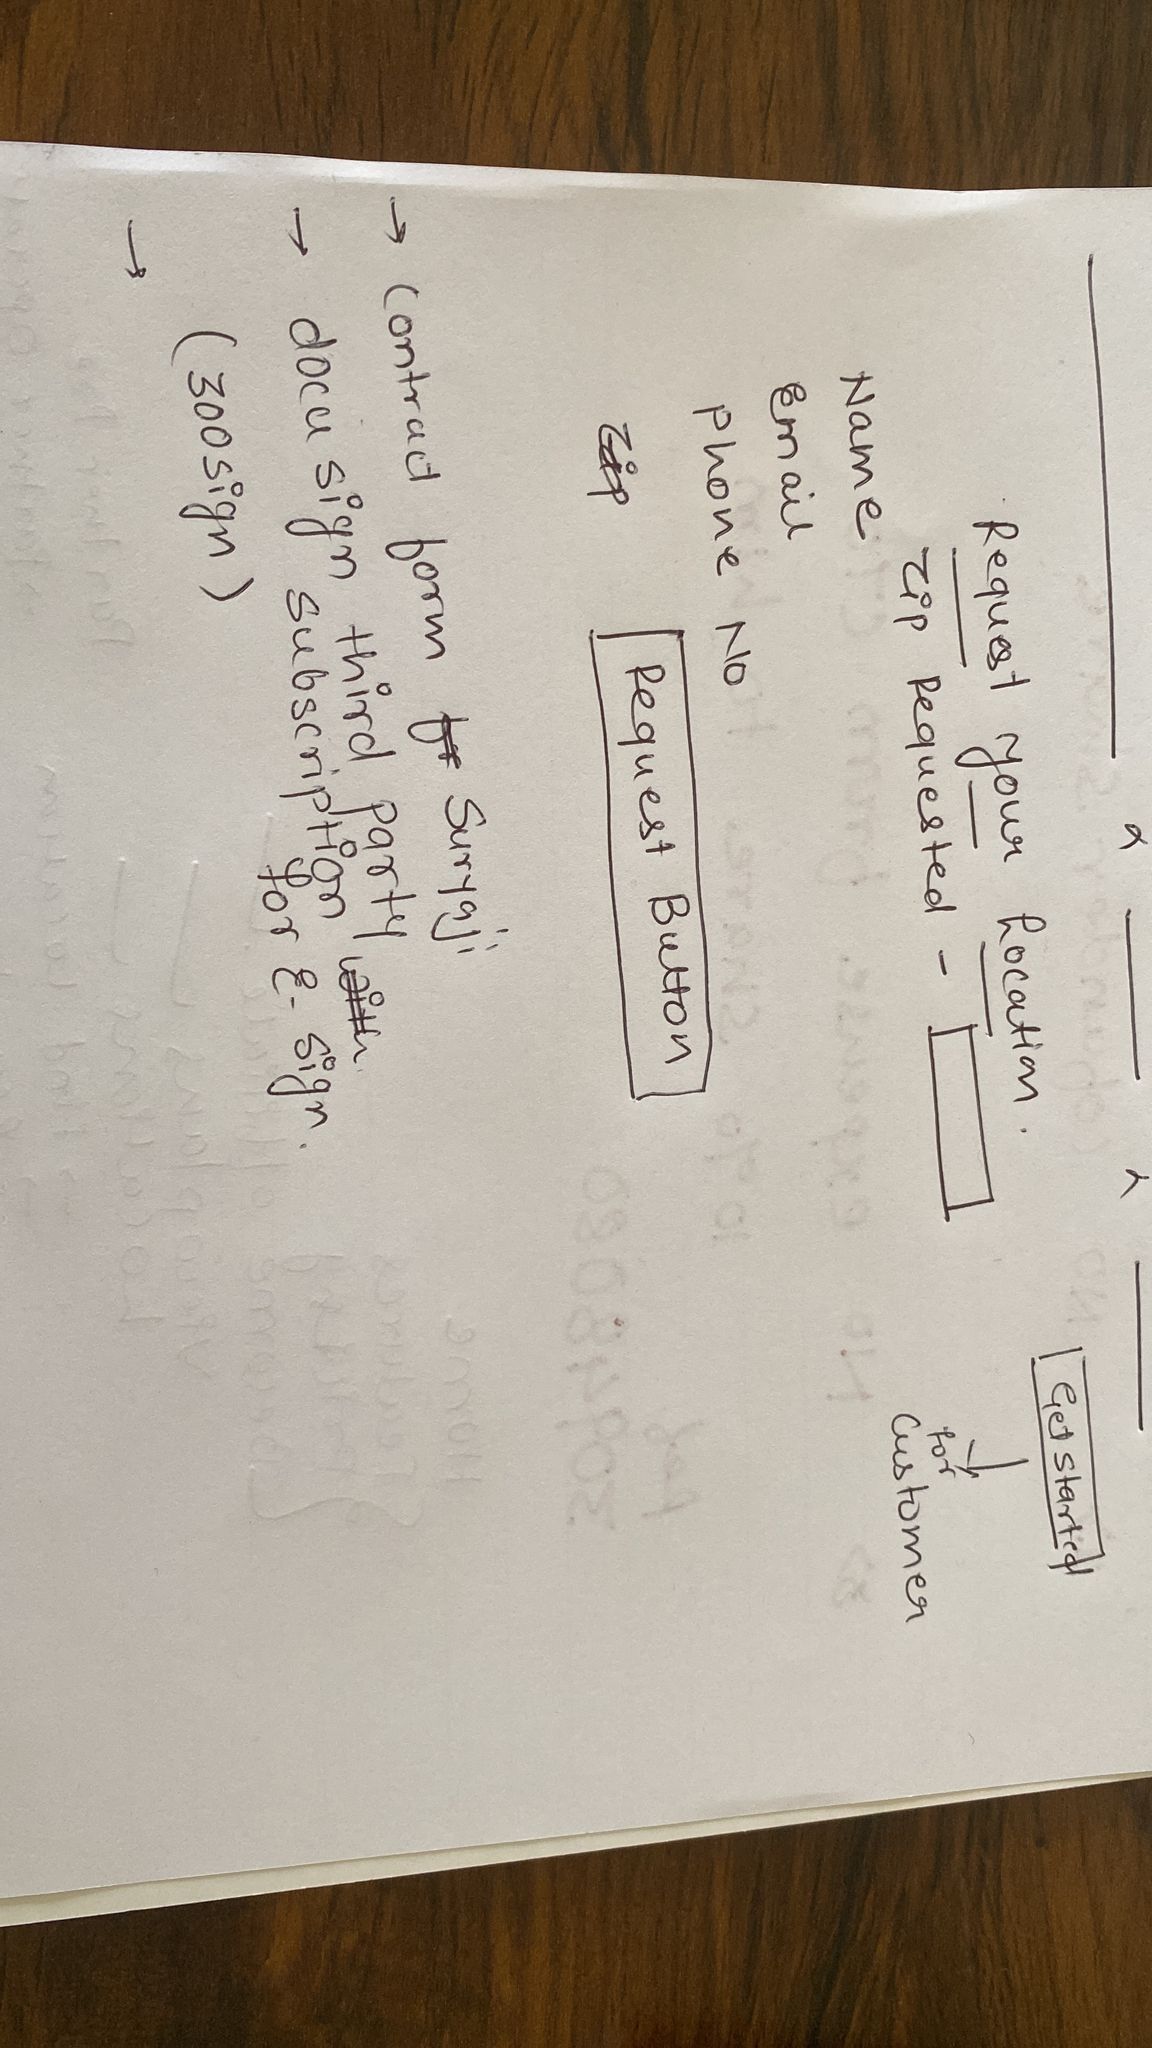 Get Started
for
Customer
Request your Location.
Zip Requested -
Name
Email
Phone No
Zip
Request Button
→ Contract form for Suryaji
→ docu sign third party
subscription with
for E-Sign.
(300sign)
→